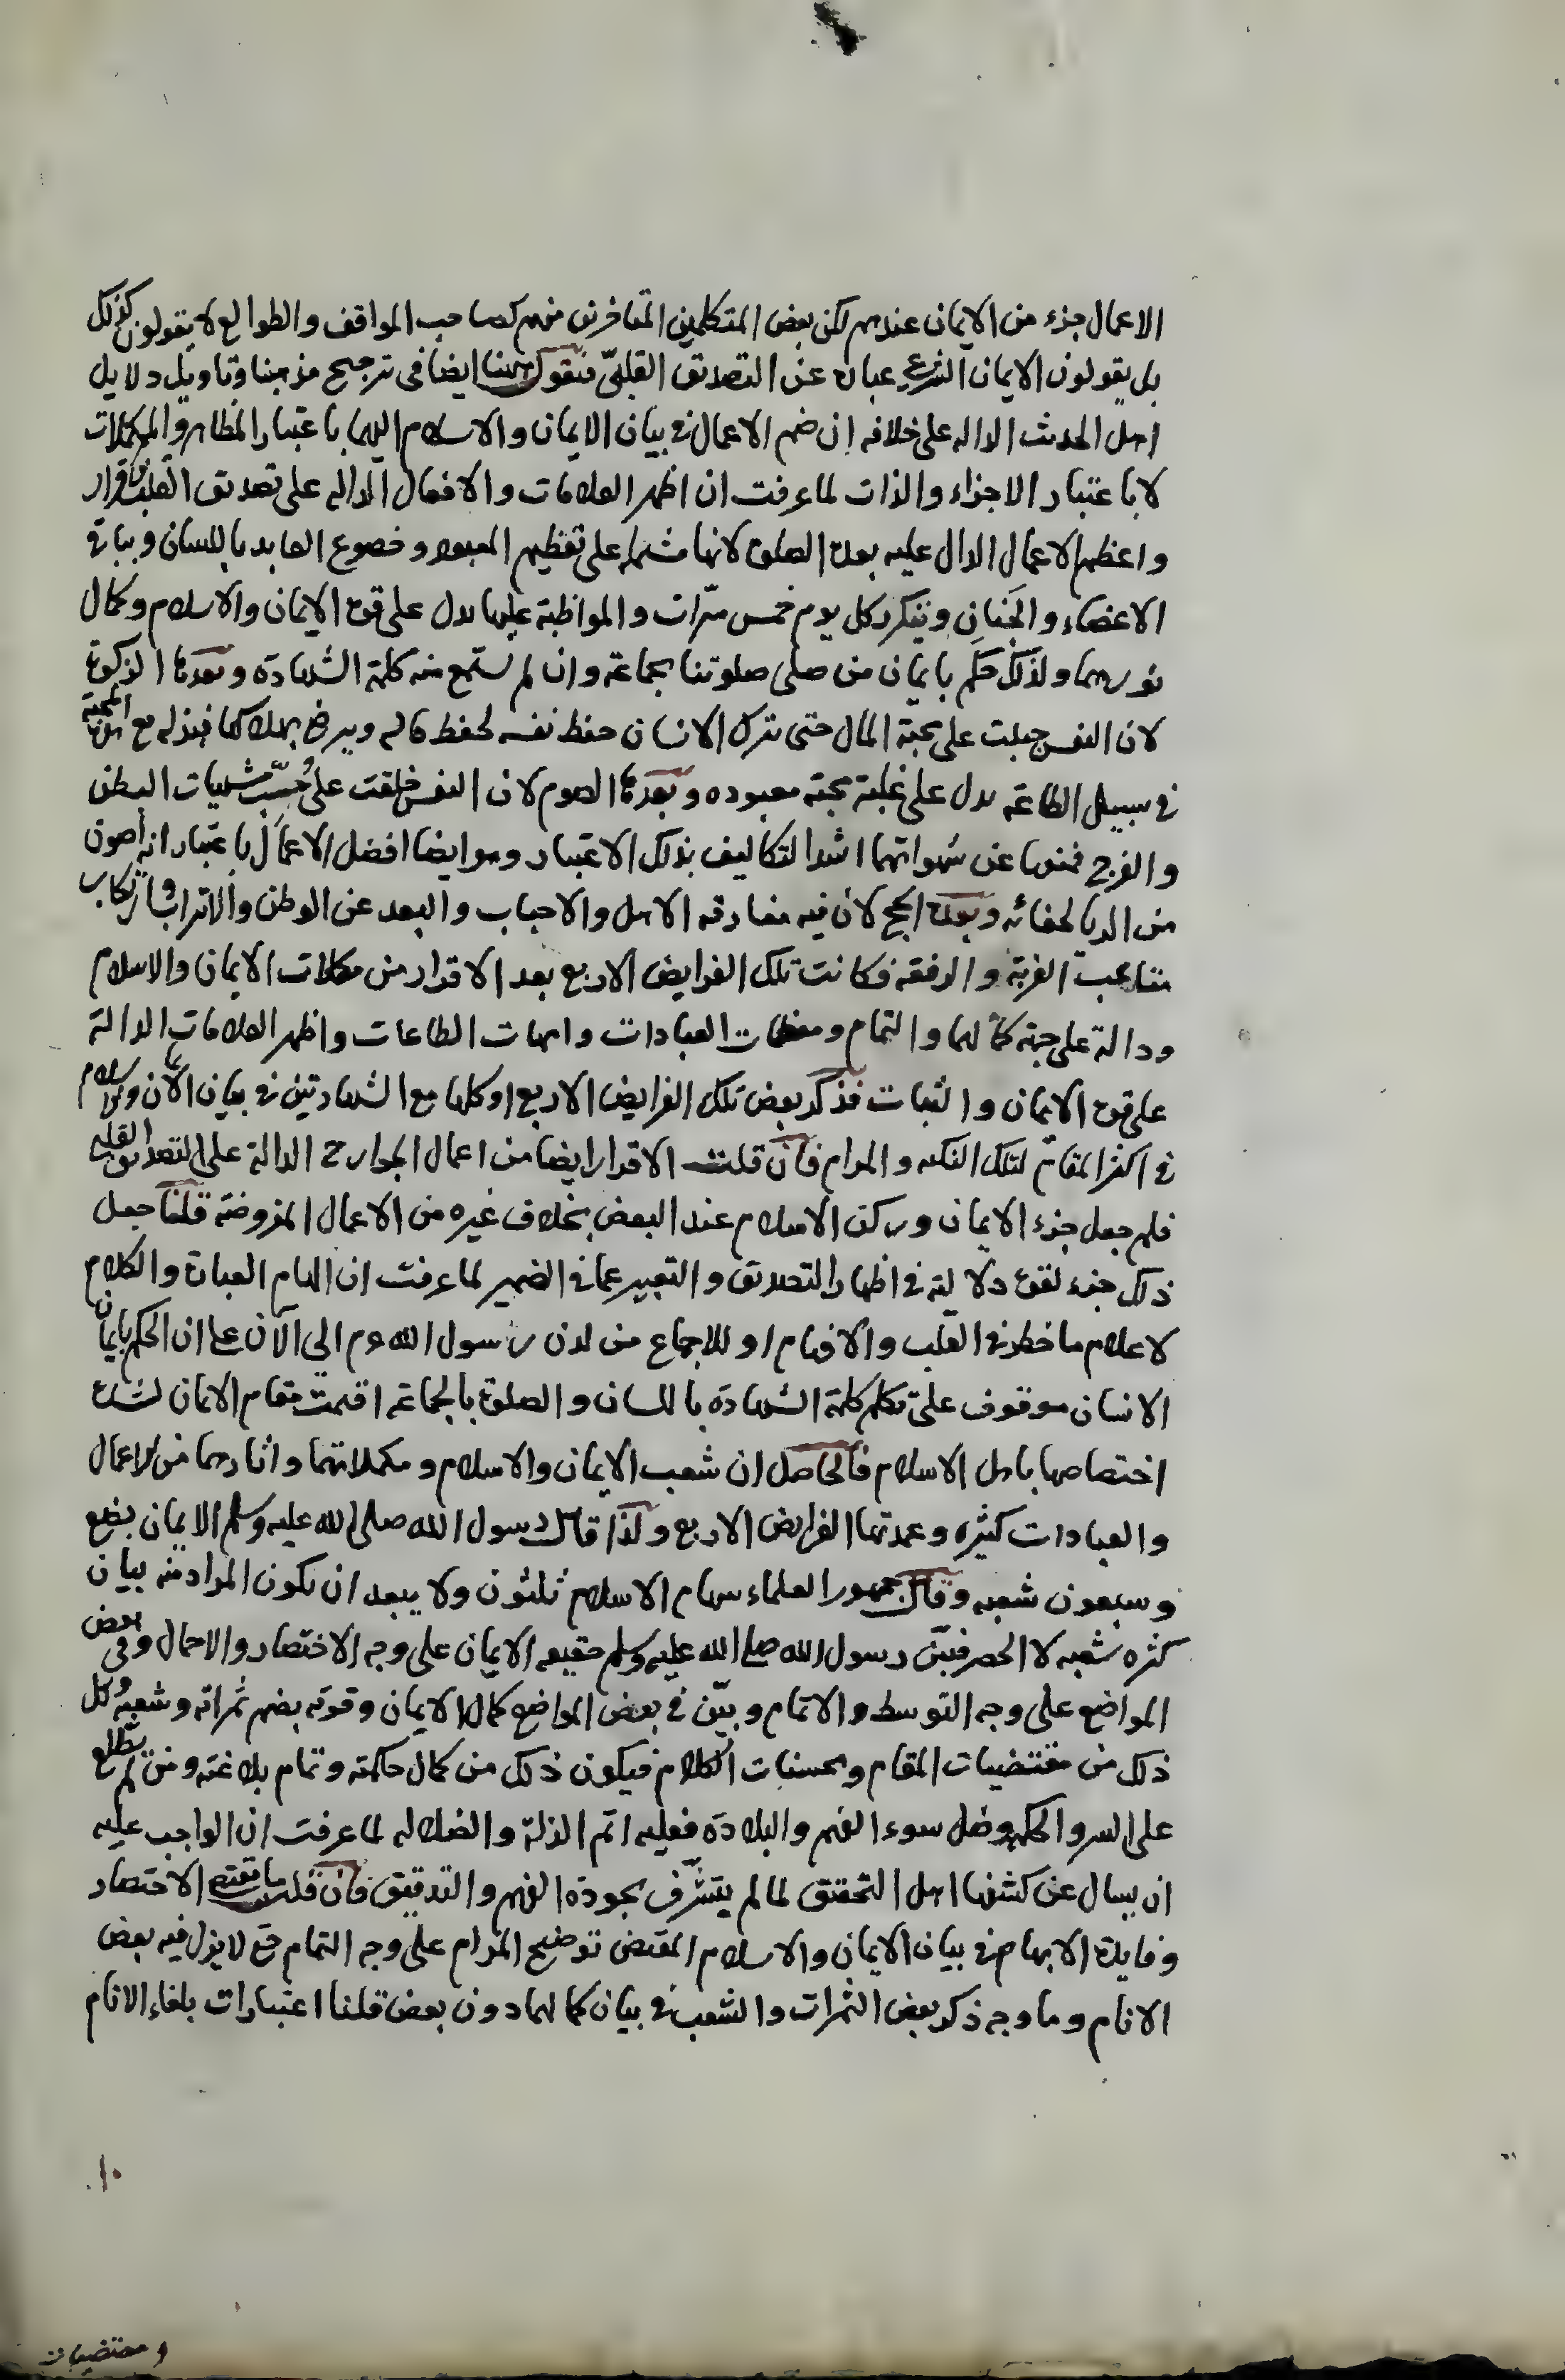 الاعمال جزء من الايمان عندهم لكن بعض المتكلمين المتاخرين منهم كصاحب المواقف والطوالع لا يقولون كذلك
بل يقولون الايمان الشرعي عبارة عن التصديق القلبيّ فنقول ههنا ايضا في ترجيح مذهبنا وتاويل دلايل
اهل الحديث الداله على خلافه ان ضم الاعمال في بيان الايمان والاسلام اليهما باعتبار المظاهر والمكملات
لا باعتبار الاجزاء والذات لما عرفت ان اظهر العلامات والافعال الداله على تصديق القلب اقرار
واعظم الاعمال الدال عليه بعده الصلوة لانها مشتملة على تعظيم المعبود وخضوع العابد باللسان وبباقي
الاعضاء والجَنَانِ ويتكرر كل يوم خمس مرّات والمواظبة عليها يدل على قوة الايمان والاسلام وكمال
نورهما ولذلك حكم بايمان من صلى صلوتنا بجماعة وان لم نستمع منه كلمة الشهادة وبعدها الزكوة
لان النفس جبلت على محبة المال حتى يترك الانسان حفظ نفسه لحفظ ماله ويرضى بهلاكها فبذله مع المحبة
في سبيل الطاعة يدل على غلبة محبة معبوده وبعدها الصوم لان النفس خلقت على حُبِّ مشتهيات البطن
والفرج فمنعها عن شهواتهما اشد التكاليف بذلك الاعتبار وهو ايضا افضل الاعمال باعتبار انه اصون
من الريا لخفائه وبعده الحج لان فيه مفارقة الاهل والاحباب والبعد عن الوطن والاتراب وارتكاب
متاعب الغربة والرفقة فكانت تلك الفرايض الاربع بعد الاقرار من مكملات الايمان والاسلام
ودالة على جهة كمالهما والتمام ومعظمات العبادات وامهات الطاعات واظهر العلامات الدالة
على قوة الايمان والثبات فذكر بعض تلك الفرايض الاربع او كلها مع الشهادتين في بيان الايمان والاسلام
في اكثر المقام لتلك النكته والمرام فان قلت الاقرار ايضا من اعمال الجوارح الدالة على التصديق القلبي
فلم جعل جزء الايمان وركن الاسلام عند البعض بخلاف غيره من الاعمال المفروضة قلنا جعل
ذلك جزء لقوة دلالته في اظهار التصديق والتعبير عما في الضمير لما عرفت ان الهام العبارة والكلام
لاعلام ما خطر في القلب والافهام او للاجماع من لدن رسول الله عم الى الآن على ان الحكم بايمان
الانسان موقوف على تكلم كلمة الشهادة باللسان والصلوة بالجماعة اقيمت مقام الايمان لشدة
اختصاصها باهل الاسلام فالحاصل ان شعب الايمان والاسلام ومكملاتهما واثارهما من الاعمال
والعبادات كثيره وعمدتها الفرايض الاربع ولذا قال رسول الله صلى الله عليه وسلم الايمان بضع
وسبعون شعبه وقال جمهور العلماء سهام الاسلام ثلثون ولا يبعد ان يكون المراد منه بيان
كثره شعبه لا الحصر فبيّن رسول الله صلى الله عليه وسلم حقيقه الايمان على وجه الاختصار والاجمال وفي بعض
المواضع على وجه التوسط والاتمام وبيّن في بعض المواضع كمال الايمان وقوته بضم ثمراته وشعبه وكل
ذلك من مقتضيات المقام ومحسنات الكلام فيكون ذلك من كمال حكمته وتمام بلاغته ومن لم يطلع
على السر والحكم وضل سوء الفهم والبلادة فعليه اثم الذلة والضلاله لما عرفت ان الواجب عليه
ان يسال عن كشفها اهل التحقيق لما لم يتشرّف بجودة الفهم والتدقيق فان قلت ما نكتة الاختصار
وفايدة الابهام في بيان الايمان والاسلام المقتضى توضيح المرام على وجه التمام حتى لا يزل فيه بعض
الانام وما وجه ذكر بعض الثمرات والشعب في بيان كمالهما دون بعض قلنا اعتبارات بلغاء الانام
١٠
ومقتضيات